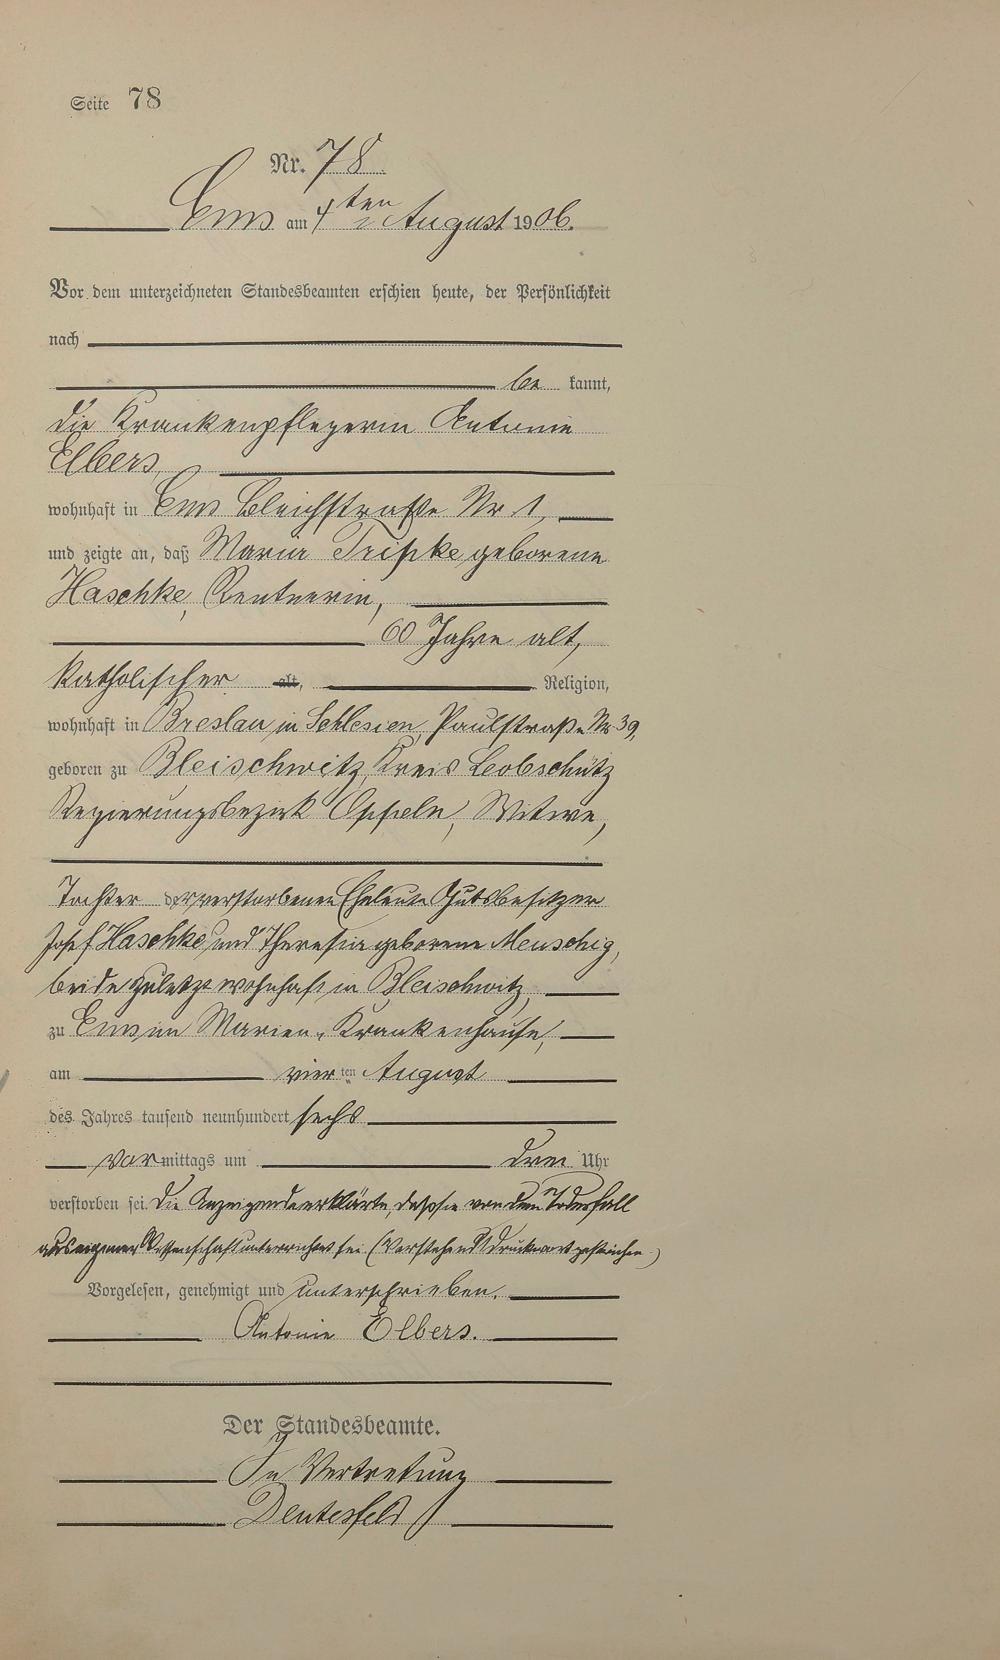 Seite 78
Nr. 78
Ems am 4ten August 1906.
Vor dem unterzeichneten Standesbeamten erschien heute, der Persönlichkeit
nach
be kannt,
die Krankenpflegerin Antonie
Elbers,
wohnhaft in Ems Bleichstraße Nr 1,
und zeigte an, daß Maria Tripke geborene
Haschke, Rentnerin,
60 Jahre alt,
katholischer alt, Religion,
wohnhaft in Breslau in Schlesien, Paulstraße Nr 39,
geboren zu Bleischwitz, Kreis Leobschütz
Regierungsbezirk Oppeln, Witwe,
Tochter der verstorbenen Eheleute Gutsbesitzer
Josef Haschke und Theresia geborene Meuschig,
beide zuletzt wohnhaft in Bleischwitz,
zu Ems im Marien-Krankenhause,
am vier ten August
des Jahres tausend neunhundert sechs
vor mittags um drei Uhr
verstorben sei. Die Anzeigende erklärte, daß sie von dem Todesfall
aus eigener Wissenschaft unterrichtet sei (Vorstehend 1 Druckwort gestrichen.)
Vorgelesen, genehmigt und unterschrieben.
Antonie Elbers.
Der Standesbeamte.
In Vertretung